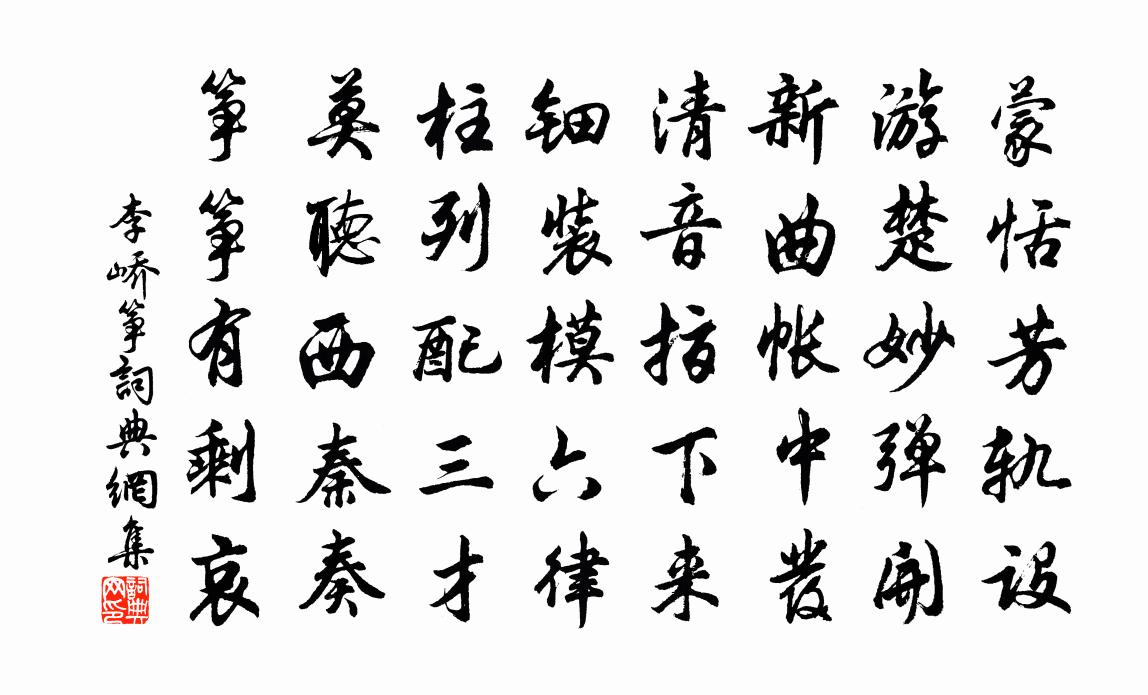 蒙恬芳轨设
游楚妙弹開
新曲帐中發
清音指下来
钿裝模六律
柱列配三才
莫聽西秦奏
筝筝有剩哀
李嶠筝詞典網集
詞典网印